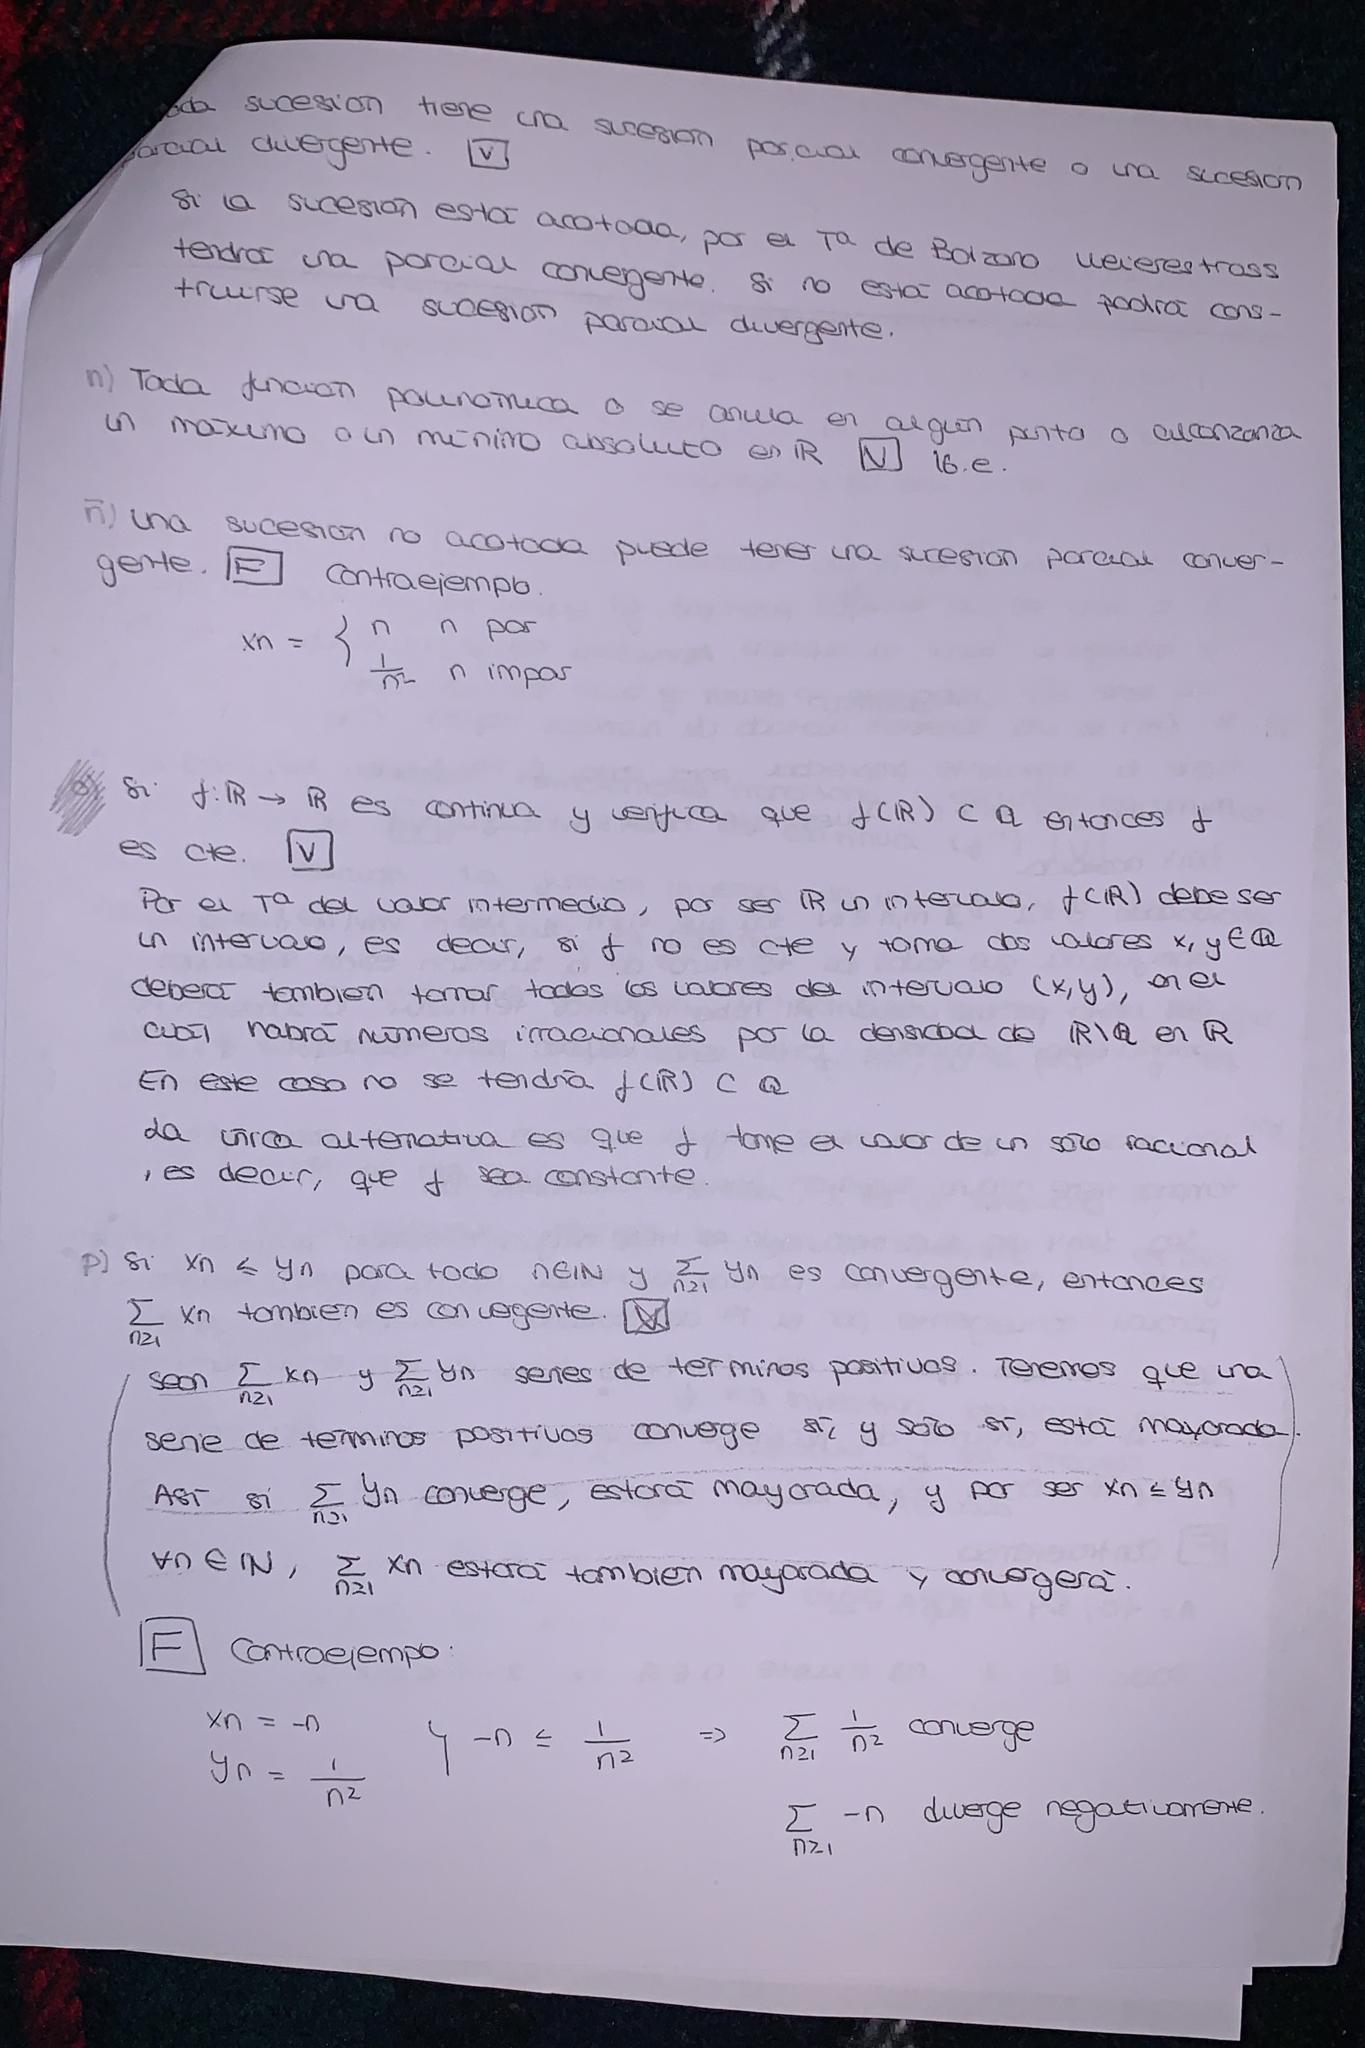 sucesión tiene una sucesión parcial convergente o una sucesión
parcial divergente. V
Si la sucesión está acotada, por el Tª de Bolzano Weierestrass
tendrá una parcial convergente. Si no está acotada podrá cons-
truirse una sucesión parcial divergente.
n) Toda función polinómica o se anula en algún punto o alcanzanza
un máximo o un mínimo absoluto en ℝ V 16.e.
ñ) una sucesión no acotada puede tener una sucesión parcial conver-
gente. F Contraejemplo.
xn = { n n par
1/n² n impar
o) Si f: ℝ → ℝ es continua y verifica que f(ℝ) ⊂ ℚ entonces f
es cte. V
Por el Tª del valor intermedio, por ser ℝ un intervalo, f(ℝ) debe ser
un intervalo, es decir, si f no es cte y toma dos valores x, y ∈ ℚ
deberá tambien tomar todos los valores del intervalo (x,y), en el
cual habrá números irracionales por la densidad de ℝ\ℚ en ℝ
En este caso no se tendría f(ℝ) ⊂ ℚ
La única alternativa es que f tome el valor de un solo racional
, es decir, que f sea constante.
p) Si xn ≤ yn para todo n∈ℕ y Σ n≥1 yn es convergente, entonces
Σ n≥1 xn tambien es convegente. V
Sean Σ n≥1 xn y Σ n≥1 yn series de terminos positivos. Tenemos que una
serie de terminos positivos converge sí, y sólo sí, está mayorada.
Así si Σ n≥1 yn converge, estará mayorada, y por ser xn ≤ yn
∀n ∈ ℕ, Σ n≥1 xn estará tambien mayorada y convergerá.
F Contraejemplo:
xn = -n
yn = 1/n² } -n ≤ 1/n² => Σ n≥1 1/n² converge
Σ n≥1 -n diverge negativamente.